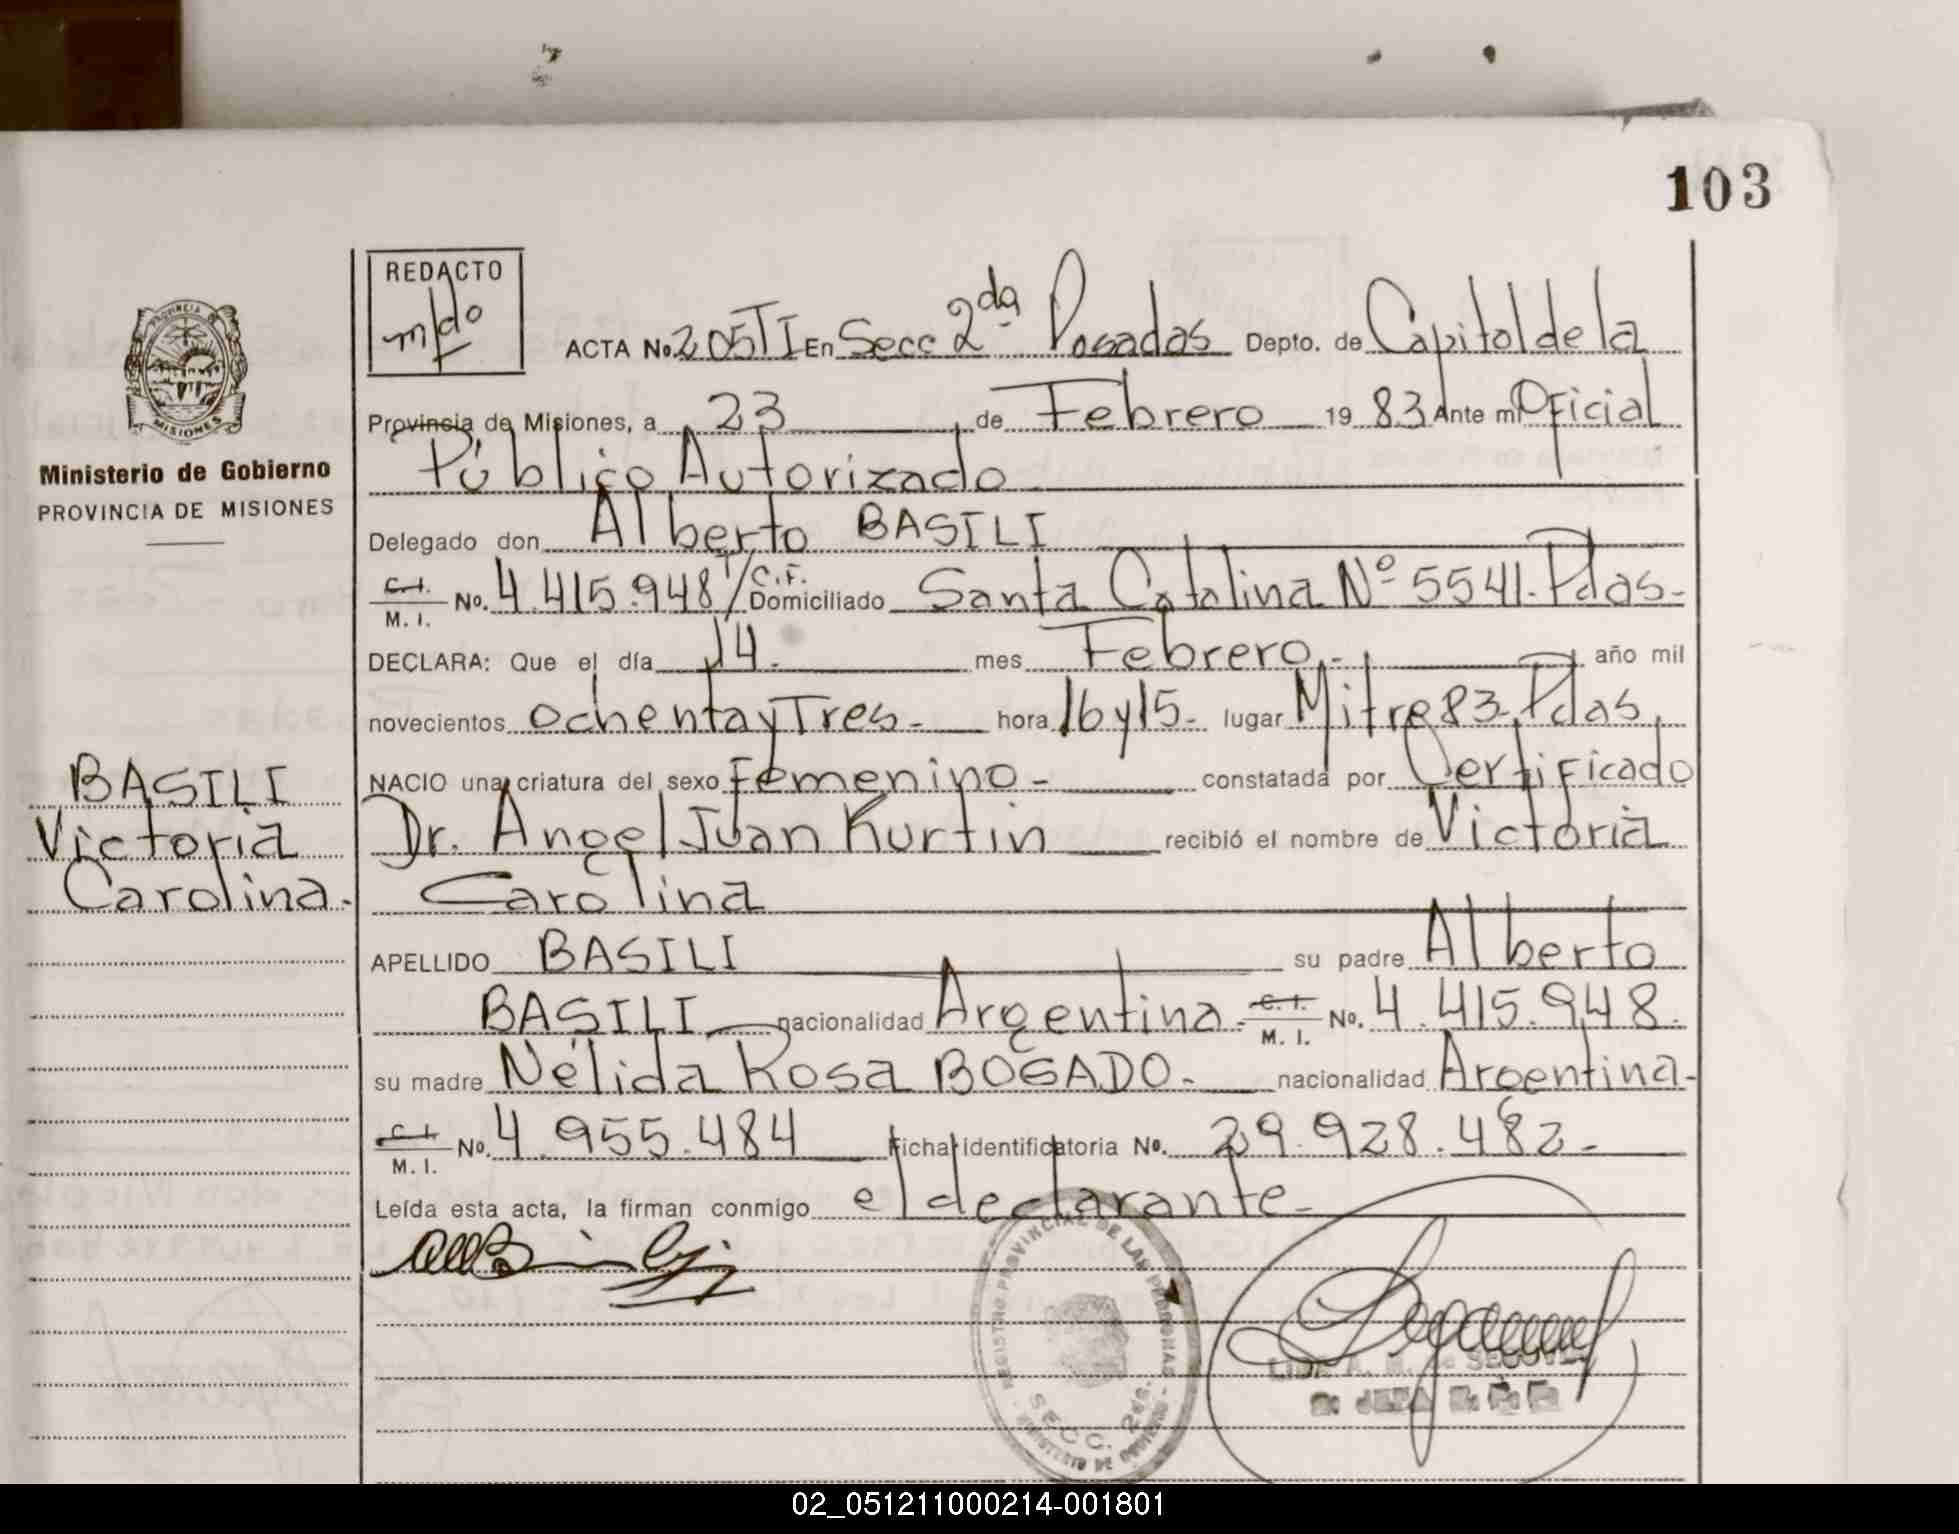 103
REDACTO
m/do
ACTA No. 205 TI En Secc 2da Posadas Depto. de Capital de la
Provincia de Misiones, a 23 de Febrero 1983 Ante mi Oficial
Público Autorizado
Delegado don Alberto BASILI
C.I. M. I. No. 4.415.948 / C.F. Domiciliado Santa Catalina Nº 5541. Pdas.
DECLARA: Que el día 14. mes Febrero.- año mil
novecientos ochenta y Tres - hora 16 y 15. lugar Mitre 83. Pdas.
NACIO una criatura del sexo Femenino - constatada por Certificado
Dr. Angel Juan Kurtin recibió el nombre de Victoria
Carolina
APELLIDO BASILI su padre Alberto
BASILI nacionalidad Argentina. C. I. M. I. No. 4.415.948.
su madre Nélida Rosa BOGADO. nacionalidad Argentina.
C.I. M. I. No. 4.955.484 Ficha identificatoria No. 29.928.482.
Leída esta acta, la firman conmigo el declarante.
PROVINCIA
MISIONES
Ministerio de Gobierno
PROVINCIA DE MISIONES
BASILI
Victoria
Carolina.
REGISTRO PROVINCIAL DE LAS PERSONAS
SECC. 2da.
MINISTERIO DE GOBIERNO
A. M. de SEGOVIA
02_051211000214-001801